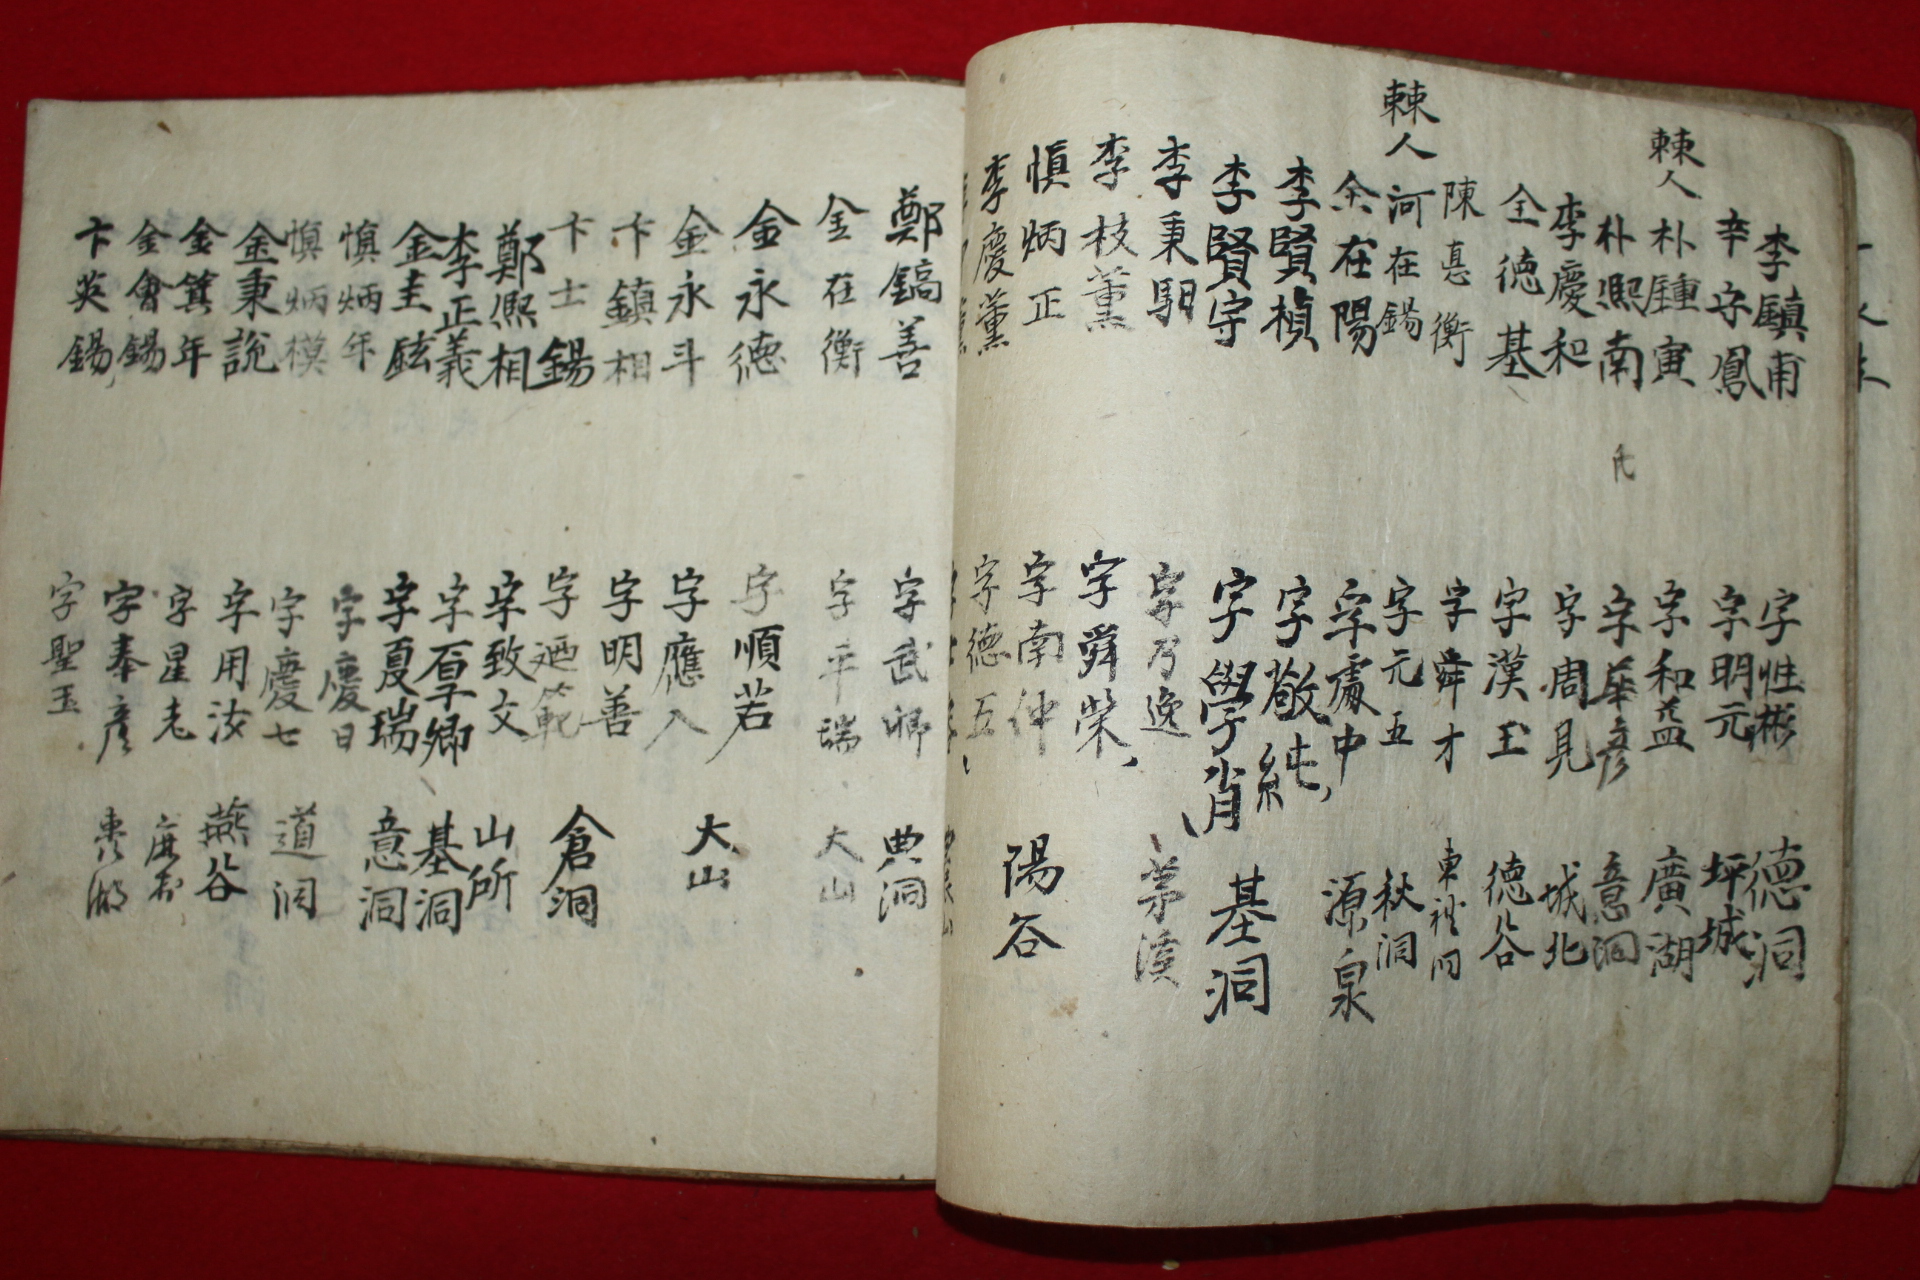 李鎭甫 字性彬 德洞
辛守鳳 字明元 坪城
棘人 朴鍾寅 字和益 廣湖
朴熙南 字華彦 意洞
李慶和 字周見 城北
全德基 字漢玉 德谷
陳惪衡 字舜才 東禮洞
棘人 河在錫 字元五 秋洞
余在陽 字處中 源泉
李賢楨 字敬純
李賢守 字學肖 基洞
李秉馹 字乃逸 茅溪
李枝薰 字舜榮
愼炳正 字南仲 陽谷
李慶薰 字德五
鄭鎬善 字武卿 典洞
金在衡 字平瑞 大山
金永德 字順若
金永斗 字應八 大山
卞鎭相 字明善
卞士錫 字範 倉洞
鄭熙相 字致文 山所
李正義 字厚卿 基洞
金圭鉉 字夏瑞 意洞
愼炳年 字慶日
愼炳模 字慶七 道洞
金秉說 字用汝 燕谷
金箕年 字星老
金會錫 字奉彦
卞英錫 字聖玉